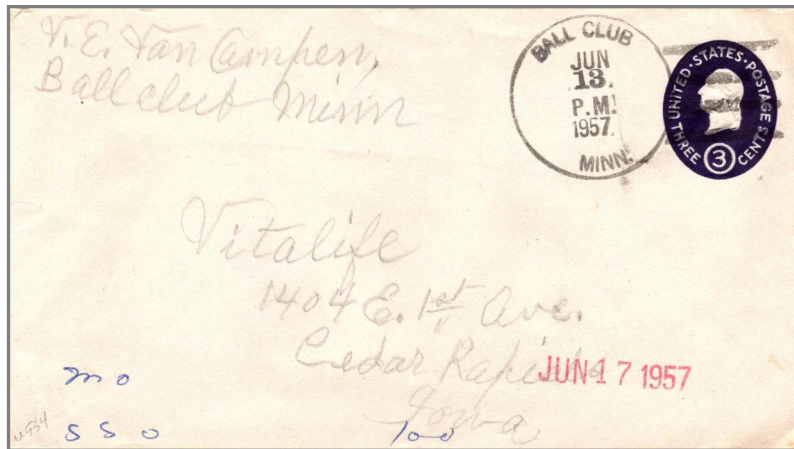 V. E. Van Campen,
Ball club Minn
BALL CLUB
JUN
13
P.M.
1957
MINN.
UNITED·STATES·POSTAGE
THREE 3 CENTS
Vitalife
1404 E. 1st Ave.
Cedar Rapids
JUN 17 1957
Iowa
m o
S S o
100
U534